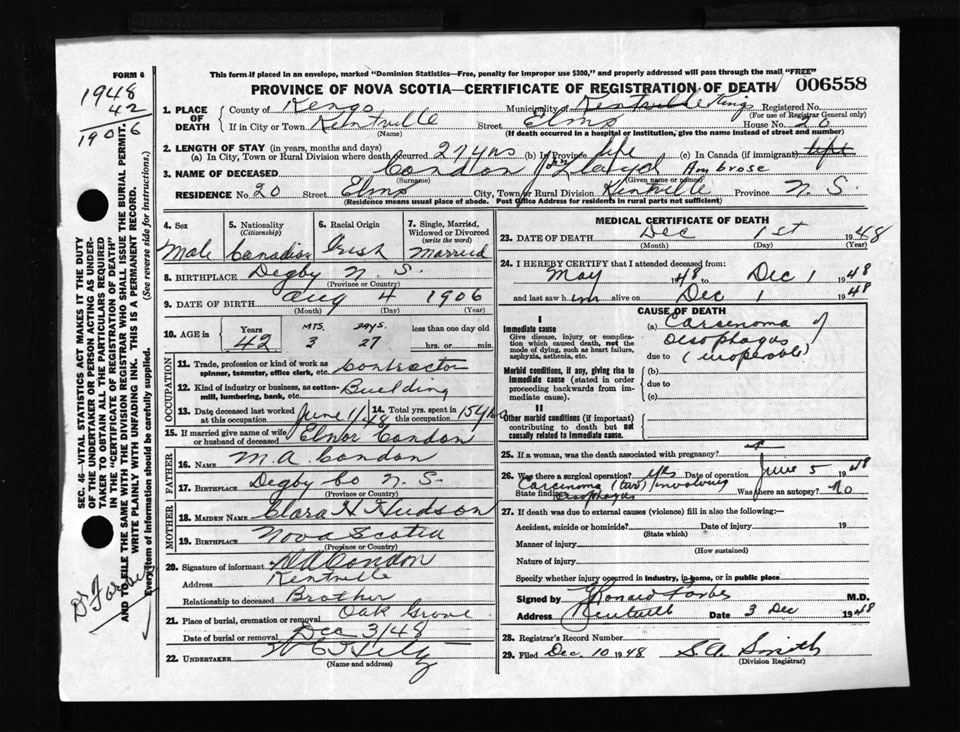 FORM 6
This form if placed in an envelope, marked "Dominion Statistics—Free, penalty for improper use $300," and properly addressed will pass through the mail "FREE"
PROVINCE OF NOVA SCOTIA—CERTIFICATE OF REGISTRATION OF DEATH 006558
1948
42
1906
1. PLACE OF DEATH County of Kengs Municipality of Kentville Kings Registered No.
(For use of Registrar General only)
If in City or Town Kentville Street Elms House No. 20
(Name) (If death occurred in a hospital or institution, give the name instead of street and number)
2. LENGTH OF STAY (in years, months and days)
(a) In City, Town or Rural Division where death occurred 27 yrs (b) In Province life (c) In Canada (if immigrant) life
3. NAME OF DECEASED Condon Lloyd Ambrose
(Surname) (Given name or names)
RESIDENCE No. 20 Street Elms City, Town or Rural Division Kentville Province N. S.
(Residence means usual place of abode. Post Office Address for residents in rural parts not sufficient)
4. Sex 5. Nationality (Citizenship) 6. Racial Origin 7. Single, Married, Widowed or Divorced (write the word)
Male Canadian Irish Married
8. BIRTHPLACE Degby N. S.
(Province or Country)
9. DATE OF BIRTH Aug 4 1906
(Month) (Day) (Year)
10. AGE in Years MTS. DAYS. less than one day old
42 3 27 hrs. or min.
OCCUPATION
11. Trade, profession or kind of work as spinner, teamster, office clerk, etc. Contractor
12. Kind of industry or business, as cotton-mill, lumbering, bank, etc. Building
13. Date deceased last worked at this occupation June 1/48 14. Total yrs. spent in this occupation 15 yrs
15. If married give name of wife or husband of deceased Elinor Condon
FATHER
16. NAME M. A. Condon
17. BIRTHPLACE Degby Co N. S.
(Province or Country)
MOTHER
18. MAIDEN NAME Clara H Hudson
19. BIRTHPLACE Nova Scotia
(Province or Country)
20. Signature of informant Condon
Address Kentville
Relationship to deceased Brother
21. Place of burial, cremation or removal Oak Grove
Date of burial or removal Dec 3/48
22. UNDERTAKER
(Name and address)
MEDICAL CERTIFICATE OF DEATH
23. DATE OF DEATH Dec 1st 1948
(Month) (Day) (Year)
24. I HEREBY CERTIFY that I attended deceased from:
May 1948 to Dec 1 1948
and last saw him alive on Dec 1 1948
CAUSE OF DEATH
I
Immediate cause
Give disease, injury or complication which caused death, not the mode of dying, such as heart failure, asphyxia, asthenia, etc.
(a) Carcenoma of
Oesophagus
due to (inoperable)
Morbid conditions, if any, giving rise to immediate cause (stated in order proceeding backwards from immediate cause).
(b)
due to
(c)
II
Other morbid conditions (if important) contributing to death but not causally related to immediate cause.
25. If a woman, was the death associated with pregnancy?
26. Was there a surgical operation? yes Date of operation June 5 1948
State findings Carcinoma involving Oesophagus Was there an autopsy? No
27. If death was due to external causes (violence) fill in also the following:—
Accident, suicide or homicide? Date of injury 19
(State which)
Manner of injury
(How sustained)
Nature of injury
Specify whether injury occurred in industry, in home, or in public place
Signed by Ronald Forbes M.D.
Address Kentville Date 3 Dec 1948
28. Registrar's Record Number
29. Filed Dec. 10 1948 S. A. Smith
(Division Registrar)
SEC. 46—VITAL STATISTICS ACT MAKES IT THE DUTY
OF THE UNDERTAKER OR PERSON ACTING AS UNDER-
TAKER TO OBTAIN ALL THE PARTICULARS REQUIRED
IN THE "CERTIFICATE OF REGISTRATION OF DEATH"
AND TO FILE THE SAME WITH THE DIVISION REGISTRAR WHO SHALL ISSUE THE BURIAL PERMIT.
WRITE PLAINLY WITH UNFADING INK. THIS IS A PERMANENT RECORD.
Every item of information should be carefully supplied. (See reverse side for instructions.)
Dr Forbes